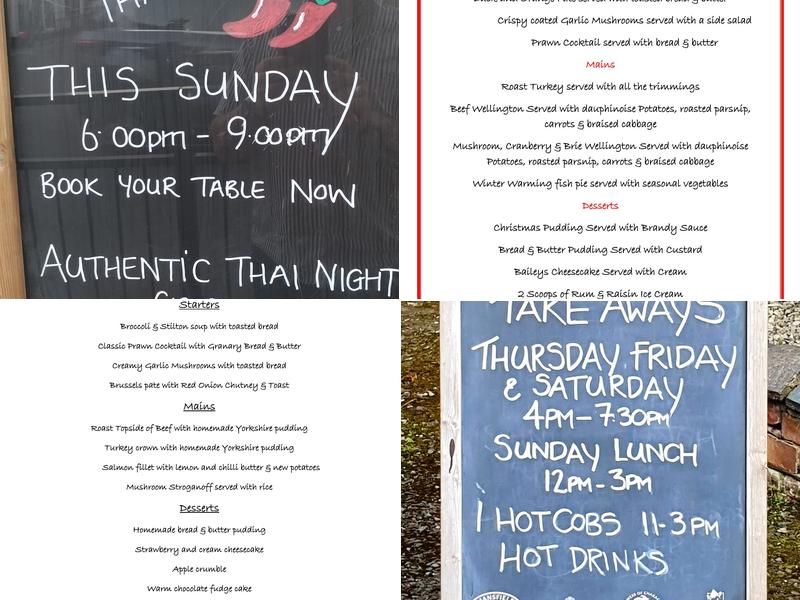 THIS SUNDAY
6:00pm - 9:00pm
BOOK YOUR TABLE NOW
AUTHENTIC THAI NIGHT
Crispy coated Garlic Mushrooms served with a side salad
Prawn Cocktail served with bread & butter
Mains
Roast Turkey served with all the trimmings
Beef Wellington Served with dauphinoise Potatoes, roasted parsnip,
carrots & braised cabbage
Mushroom, Cranberry & Brie Wellington Served with dauphinoise
Potatoes, roasted parsnip, carrots & braised cabbage
Winter Warming fish pie served with seasonal vegetables
Desserts
Christmas Pudding Served with Brandy Sauce
Bread & Butter Pudding Served with Custard
Baileys Cheesecake Served with Cream
2 Scoops of Rum & Raisin Ice Cream
Starters
Broccoli & Stilton soup with toasted bread
Classic Prawn Cocktail with Granary Bread & Butter
Creamy Garlic Mushrooms with toasted bread
Brussels pate with Red Onion Chutney & Toast
Mains
Roast Topside of Beef with homemade Yorkshire pudding
Turkey crown with homemade Yorkshire pudding
Salmon fillet with lemon and chilli butter & new potatoes
Mushroom Stroganoff served with rice
Desserts
Homemade bread & butter pudding
Strawberry and cream cheesecake
Apple crumble
Warm chocolate fudge cake
TAKE AWAYS
THURSDAY FRIDAY
& SATURDAY
4PM-7:30PM
SUNDAY LUNCH
12PM-3PM
HOT COBS 11-3PM
HOT DRINKS